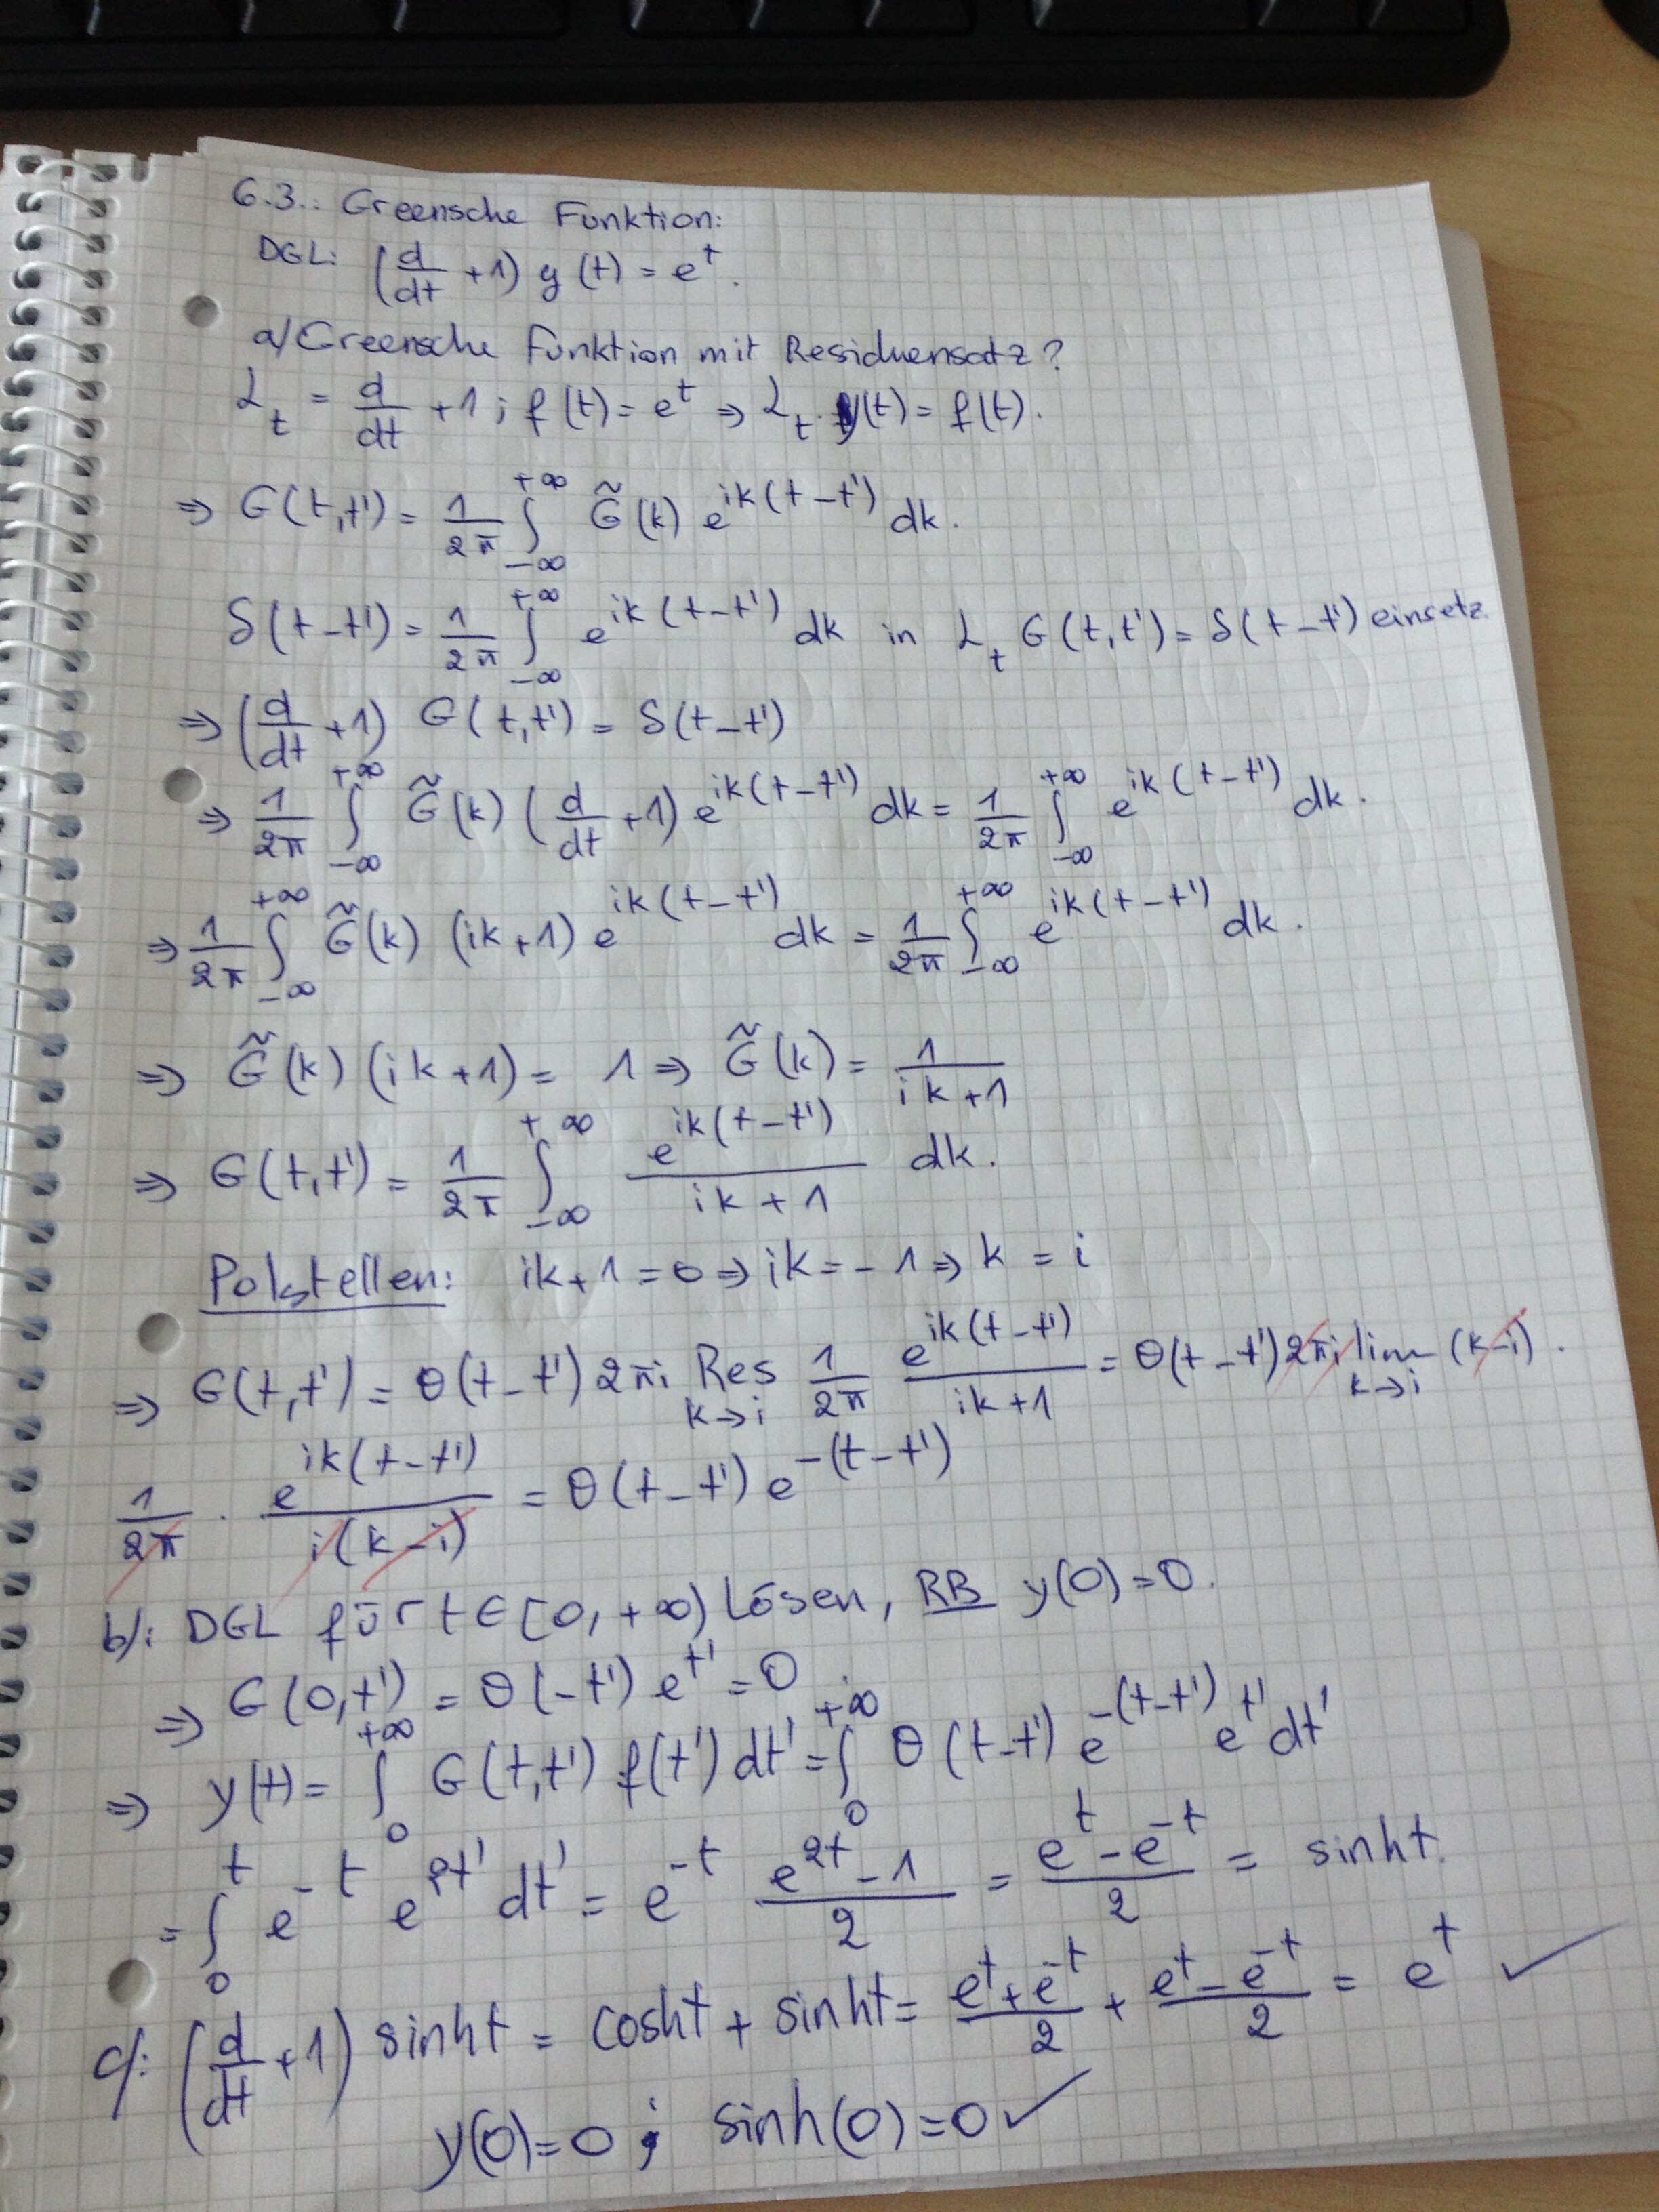 6.3.: Greensche Funktion:
DGL: (d/dt + 1) y(t) = e^t.
a/ Greensche Funktion mit Residuensatz?
L_t = d/dt + 1 ; f(t) = e^t ⇒ L_t y(t) = f(t).
⇒ G(t,t') = 1/2π ∫_{-∞}^{+∞} G̃(k) e^{ik(t-t')} dk.
δ(t-t') = 1/2π ∫_{-∞}^{+∞} e^{ik(t-t')} dk in L_t G(t,t') = δ(t-t') einsetz.
⇒ (d/dt + 1) G(t,t') = δ(t-t')
⇒ 1/2π ∫_{-∞}^{+∞} G̃(k) (d/dt + 1) e^{ik(t-t')} dk = 1/2π ∫_{-∞}^{+∞} e^{ik(t-t')} dk.
⇒ 1/2π ∫_{-∞}^{+∞} G̃(k) (ik+1) e^{ik(t-t')} dk = 1/2π ∫_{-∞}^{+∞} e^{ik(t-t')} dk.
⇒ G̃(k) (ik+1) = 1 ⇒ G̃(k) = 1/(ik+1)
⇒ G(t,t') = 1/2π ∫_{-∞}^{+∞} e^{ik(t-t')}/(ik+1) dk.
Polstellen: ik+1 = 0 ⇒ ik = -1 ⇒ k = i
⇒ G(t,t') = θ(t-t') 2πi Res_{k→i} 1/2π e^{ik(t-t')}/(ik+1) = θ(t-t') 2πi lim_{k→i} (k-i) .
1/2π · e^{ik(t-t')}/(i(k-i)) = θ(t-t') e^{-(t-t')}
b/: DGL für t ∈ [0, +∞) Lösen, RB y(0) = 0.
⇒ G(0,t') = θ(-t') e^{t'} = 0
⇒ y(t) = ∫_0^{+∞} G(t,t') f(t') dt' = ∫_0^{+∞} θ(t-t') e^{-(t-t')} e^{t'} dt'
= ∫_0^t e^{-t} e^{2t'} dt' = e^{-t} (e^{2t} - 1)/2 = (e^t - e^{-t})/2 = sinht.
c/: (d/dt + 1) sinht = cosht + sinht = (e^t + e^{-t})/2 + (e^t - e^{-t})/2 = e^t ✓
y(0) = 0 ; sinh(0) = 0 ✓